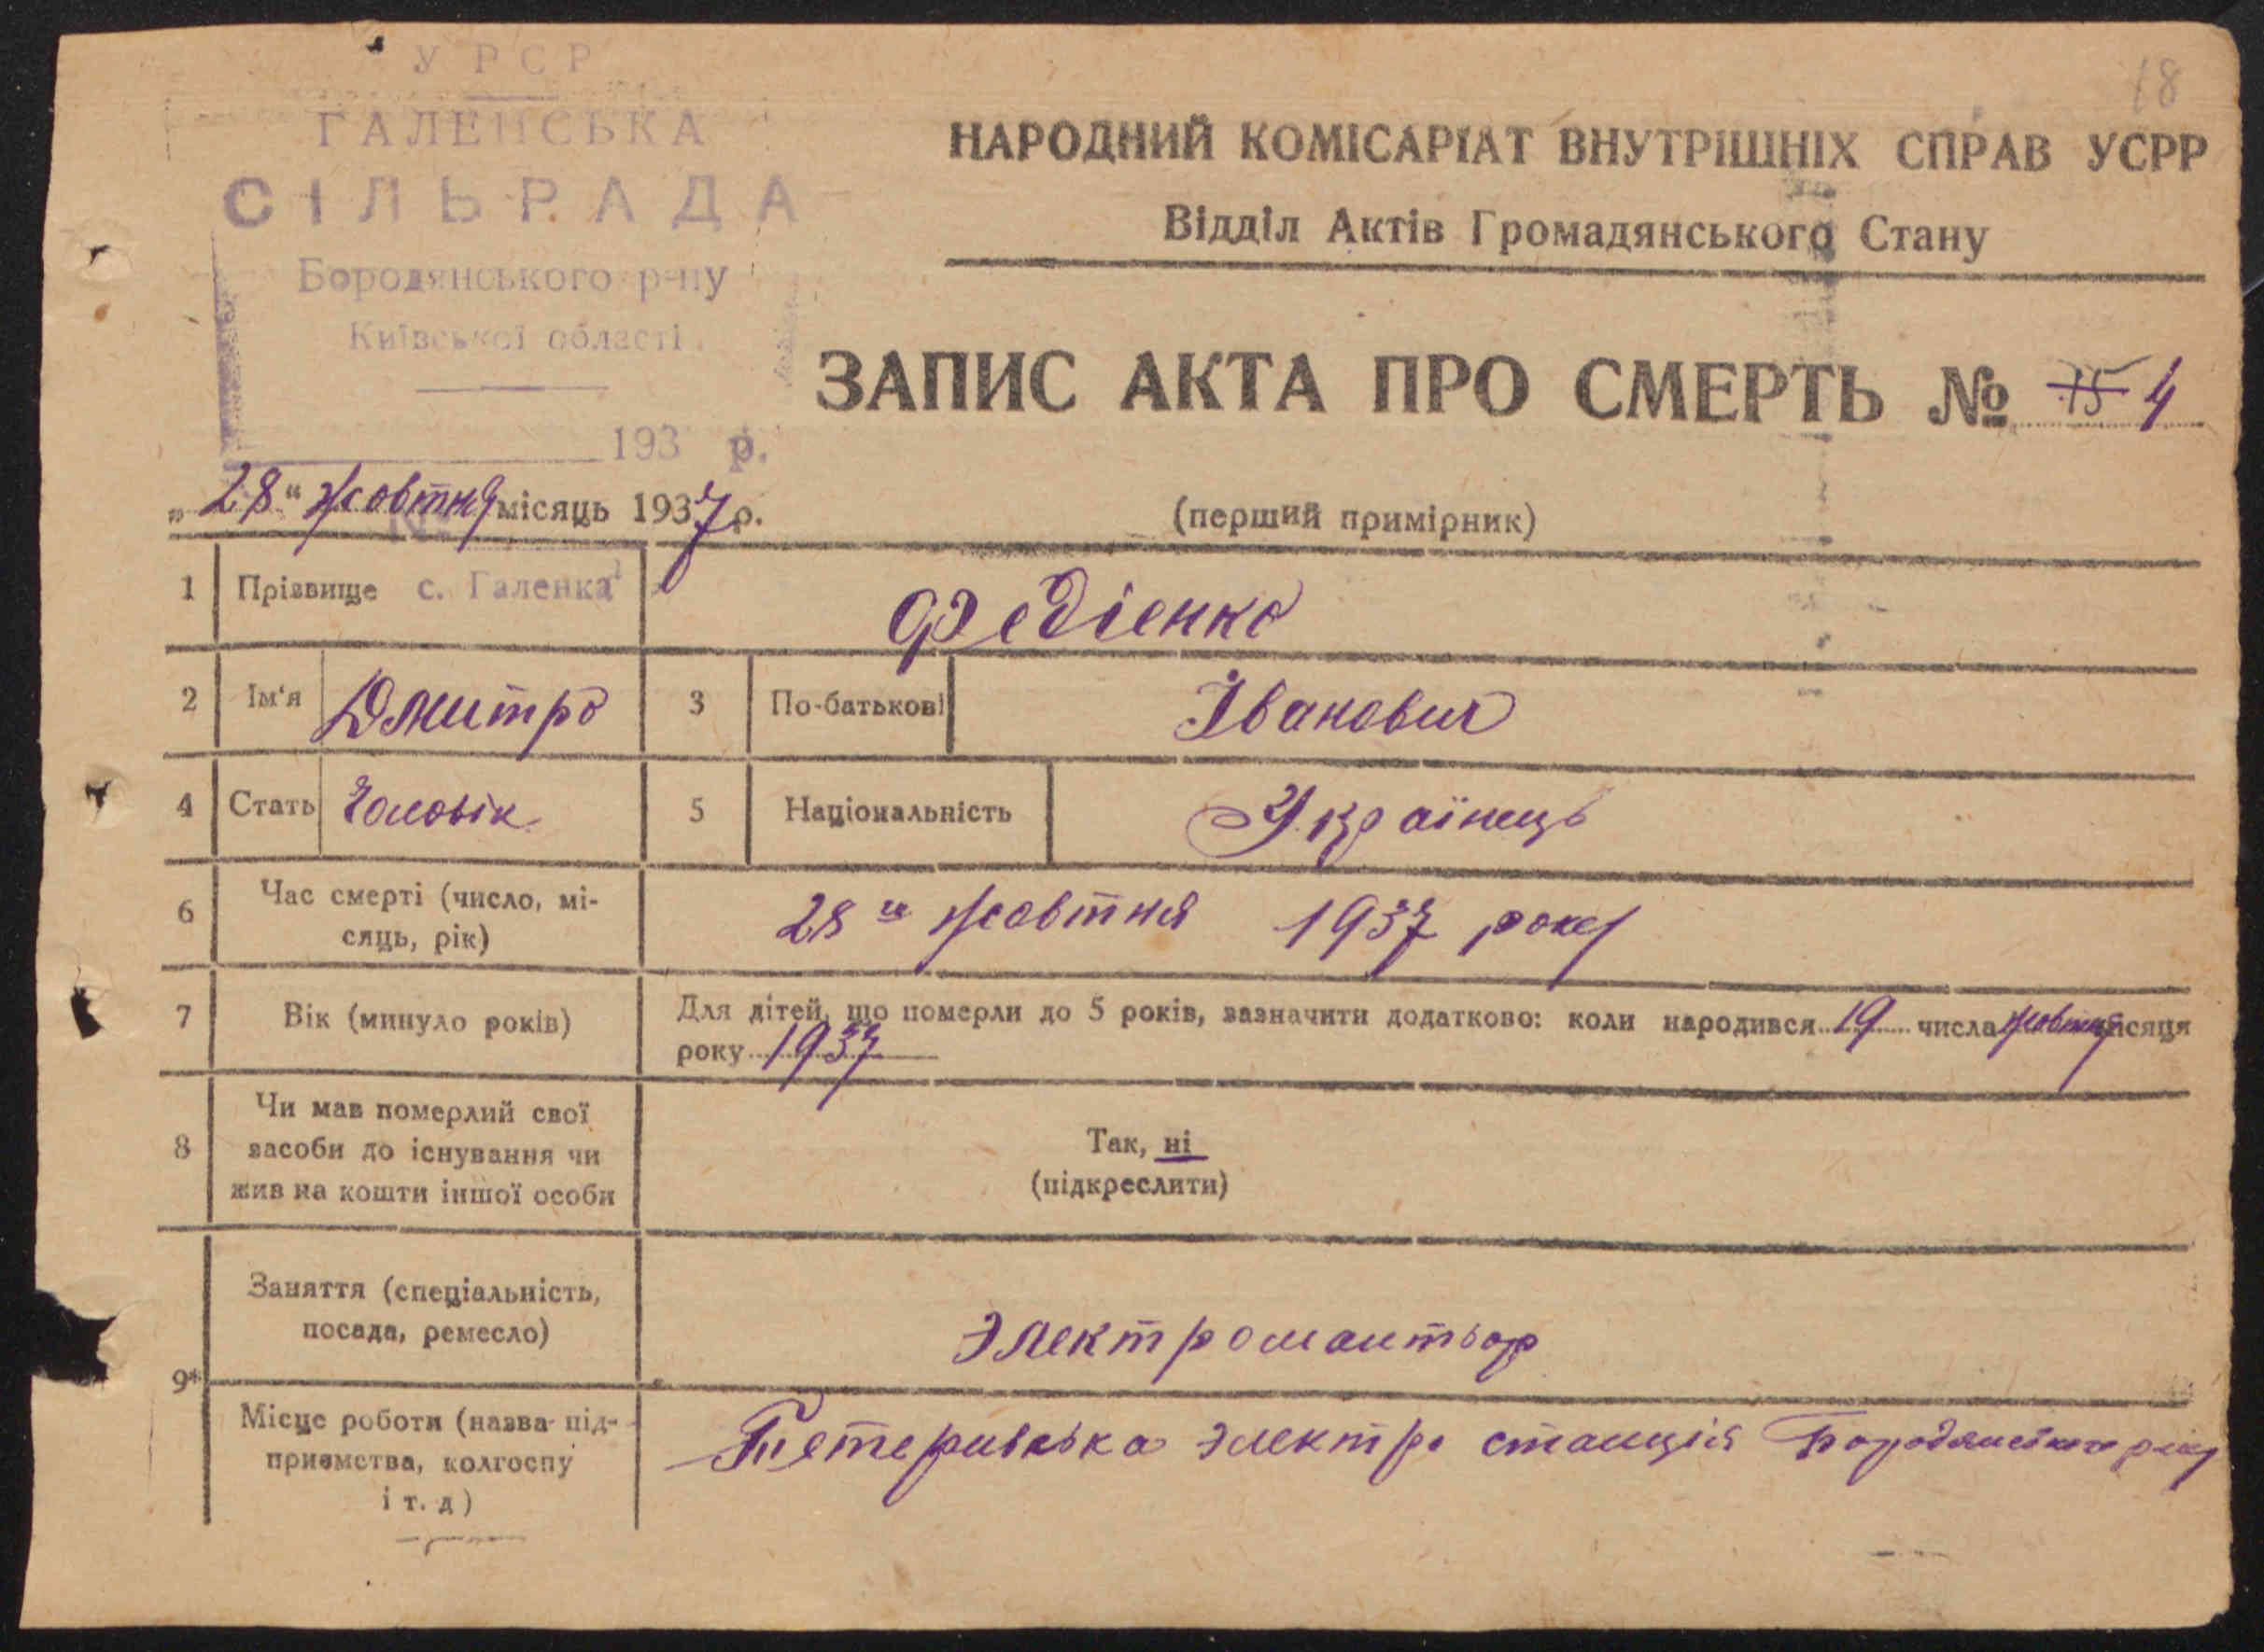 18
УРСР
ГАЛЕНСЬКА
СІЛЬРАДА
Бородянського р-ну
Київської області
193 р.
НАРОДНИЙ КОМІСАРІАТ ВНУТРІШНІХ СПРАВ УСРР
Відділ Актів Громадянського Стану
ЗАПИС АКТА ПРО СМЕРТЬ № 15 4
„28“ жовтня місяць 1937 р.
(перший примірник)
1 Прізвище с. Галенка Федієнко
2 Ім'я Дмитро 3 По-батькові Іванович
4 Стать Чоловік 5 Національність Українець
6 Час смерті (число, мі-
сяць, рік) 28го жовтня 1937 року
7 Вік (минуло років) Для дітей, що померли до 5 років, зазначити додатково: коли народився 19 числа жовтня місяця
року 1937
8 Чи мав померлий свої
засоби до існування чи
жив на кошти іншої особи
Так, ні
(підкреслити)
9* Заняття (спеціальність,
посада, ремесло) Электромонтьор
Місце роботи (назва під-
приємства, колгоспу
і т. д) Тетеривська электро станція Бородянського р-ну